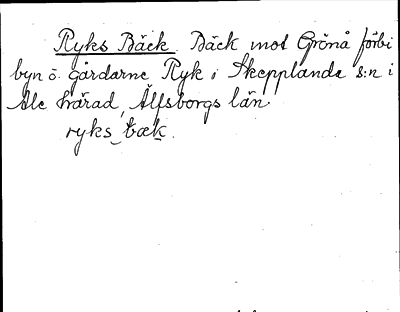 Ryks Bäck. Bäck mot Grönå förbi
byn o. gårdarne Ryk i Skepplanda s:n i
Ale härad, Älfsborgs län.
ryks_bæk.